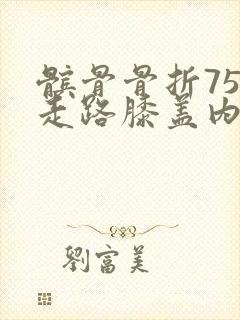 髌骨骨折75
走路膝盖内
劉富美